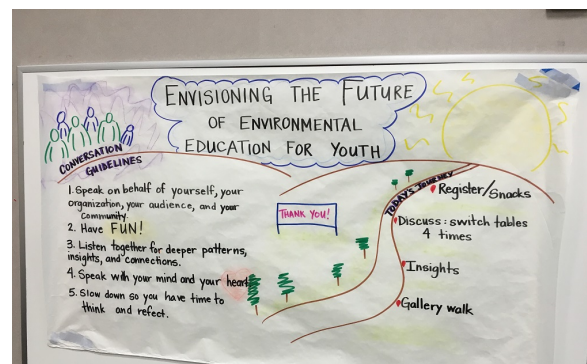 ENVISIONING THE FUTURE
OF ENVIRONMENTAL
EDUCATION FOR YOUTH
CONVERSATION
GUIDELINES
1. Speak on behalf of yourself, your
organization, your audience, and your
community.
2. Have FUN!
3. Listen together for deeper patterns,
insights, and connections.
4. Speak with your mind and your heart
5. Slow down so you have time to
think and refect.
THANK YOU!
TODAY'S JOURNEY
Register/Snacks
Discuss: switch tables
4 times
Insights
Gallery walk